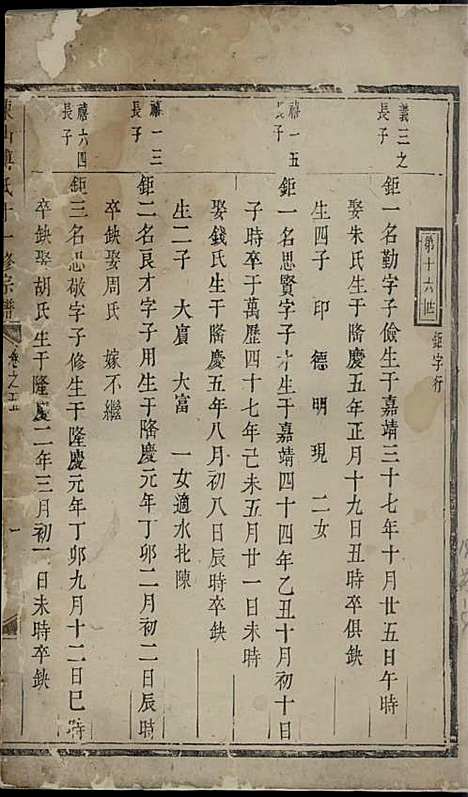 第十六世
鉅字行
義三之
長子
鉅一名勤字子儉生于嘉靖三十七年十月廿五日午時
娶朱氏生于隆慶五年正月十九日丑時卒俱缺
生四子 印 德 明 現 二女
禧一五
長子
鉅一名思賢字子才生于嘉靖四十四年乙丑十月初十日
子時卒于萬歷四十七年己未五月廿一日未時
娶錢氏生于隆慶五年八月初八日辰時卒缺
生二子 大賔 大富 一女適水北陳
禧一三
鉅二名良才字子用生于隆慶元年丁卯二月初二日辰時
卒缺娶周氏 嫁不繼
禧六四
長子
鉅三名思敬字子修生于隆慶元年丁卯九月十二日巳時
卒缺娶胡氏生于隆慶二年三月初一日未時卒缺
氏十一修宗譜
卷之
一